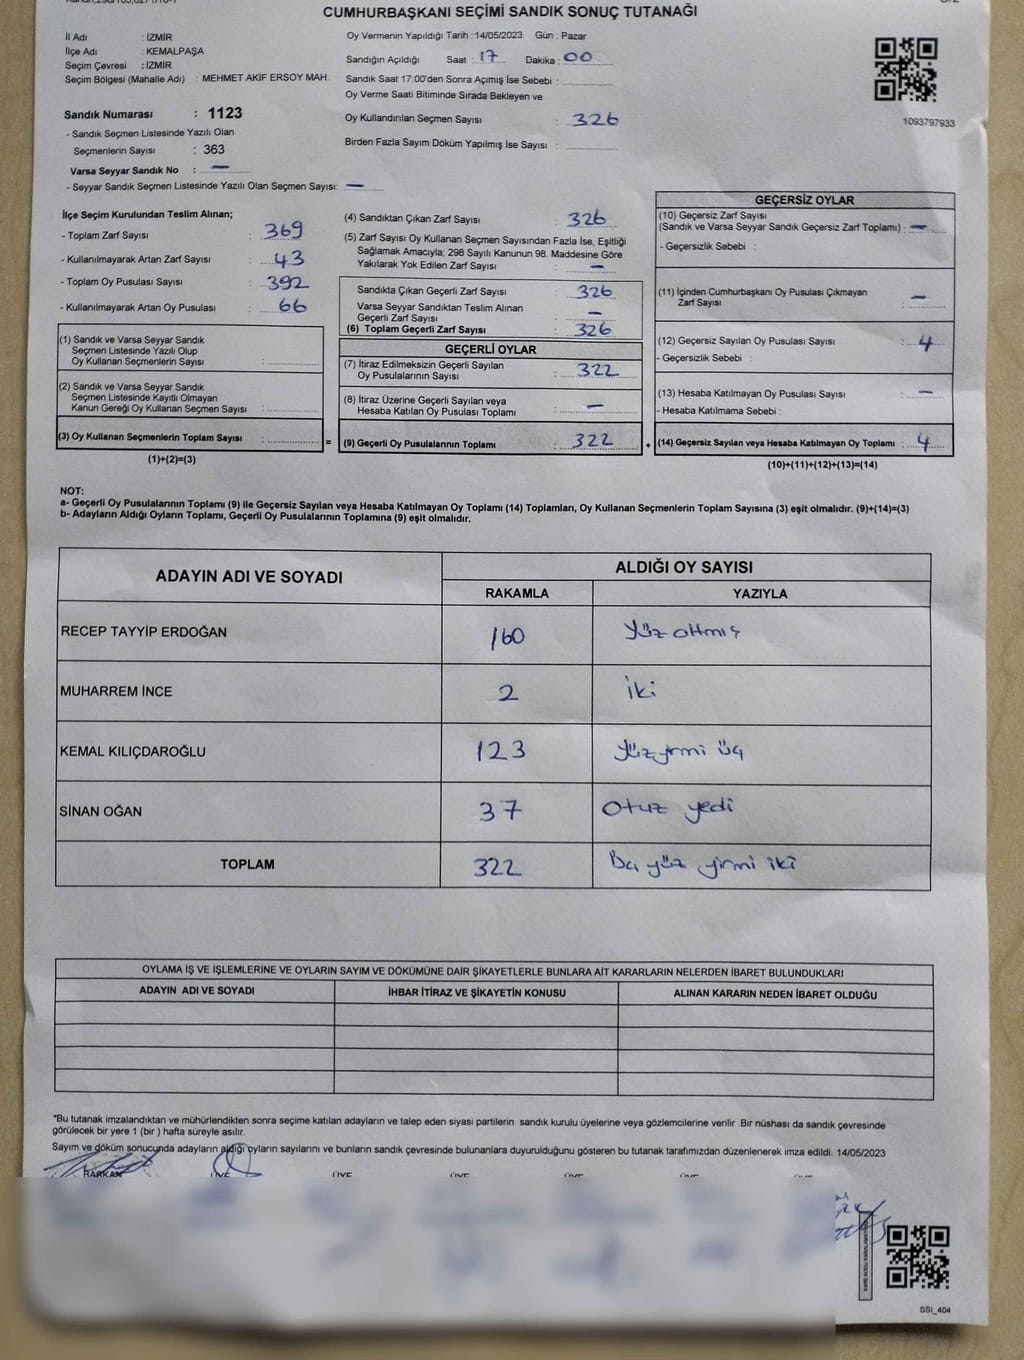 CUMHURBAŞKANI SEÇİMİ SANDIK SONUÇ TUTANAĞI
İl Adı : İZMİR
İlçe Adı : KEMALPAŞA
Seçim Çevresi : İZMİR
Seçim Bölgesi (Mahalle Adı) : MEHMET AKİF ERSOY MAH
Sandık Numarası : 1123
- Sandık Seçmen Listesinde Yazılı Olan
Seçmenlerin Sayısı : 363
Varsa Seyyar Sandık No : —
- Seyyar Sandık Seçmen Listesinde Yazılı Olan Seçmen Sayısı: —
Oy Vermenin Yapıldığı Tarih : 14/05/2023 Gün : Pazar
Sandığın Açıldığı Saat : 17 Dakika : 00
Sandık Saat 17:00'den Sonra Açımış İse Sebebi :
Oy Verme Saati Bitiminde Sırada Bekleyen ve
Oy Kullandırılan Seçmen Sayısı : 326
Birden Fazla Sayım Döküm Yapılmış İse Sayısı :
1093797933
İlçe Seçim Kurulundan Teslim Alınan;
- Toplam Zarf Sayısı : 369
- Kullanılmayarak Artan Zarf Sayısı : 43
- Toplam Oy Pusulası Sayısı : 392
- Kullanılmayarak Artan Oy Pusulası : 66
(1) Sandık ve Varsa Seyyar Sandık
Seçmen Listesinde Yazılı Olup
Oy Kullanan Seçmenlerin Sayısı :
(2) Sandık ve Varsa Seyyar Sandık
Seçmen Listesinde Kayıtlı Olmayan
Kanun Gereği Oy Kullanan Seçmen Sayısı :
(3) Oy Kullanan Seçmenlerin Toplam Sayısı : =
(1)+(2)=(3)
(4) Sandıktan Çıkan Zarf Sayısı : 326
(5) Zarf Sayısı Oy Kullanan Seçmen Sayısından Fazla İse, Eşitliği
Sağlamak Amacıyla; 298 Sayılı Kanunun 98. Maddesine Göre
Yakılarak Yok Edilen Zarf Sayısı : —
Sandıkta Çıkan Geçerli Zarf Sayısı : 326
Varsa Seyyar Sandıktan Teslim Alınan
Geçerli Zarf Sayısı : —
(6) Toplam Geçerli Zarf Sayısı : 326
GEÇERLİ OYLAR
(7) İtiraz Edilmeksizin Geçerli Sayılan
Oy Pusulalarının Sayısı : 322
(8) İtiraz Üzerine Geçerli Sayılan veya
Hesaba Katılan Oy Pusulası Toplamı : —
(9) Geçerli Oy Pusulalarının Toplamı : 322 +
GEÇERSİZ OYLAR
(10) Geçersiz Zarf Sayısı
(Sandık ve Varsa Seyyar Sandık Geçersiz Zarf Toplamı) : —
- Geçersizlik Sebebi :
(11) İçinden Cumhurbaşkanı Oy Pusulası Çıkmayan
Zarf Sayısı : —
(12) Geçersiz Sayılan Oy Pusulası Sayısı : 4
- Geçersizlik Sebebi :
(13) Hesaba Katılmayan Oy Pusulası Sayısı : —
- Hesaba Katılmama Sebebi :
(14) Geçersiz Sayılan veya Hesaba Katılmayan Oy Toplamı : 4
(10)+(11)+(12)+(13)=(14)
NOT:
a- Geçerli Oy Pusulalarının Toplamı (9) ile Geçersiz Sayılan veya Hesaba Katılmayan Oy Toplamı (14) Toplamları, Oy Kullanan Seçmenlerin Toplam Sayısına (3) eşit olmalıdır. (9)+(14)=(3)
b- Adayların Aldığı Oyların Toplamı, Geçerli Oy Pusulalarının Toplamına (9) eşit olmalıdır.
ADAYIN ADI VE SOYADI ALDIĞI OY SAYISI
RAKAMLA YAZIYLA
RECEP TAYYİP ERDOĞAN 160 Yüz altmış
MUHARREM İNCE 2 iki
KEMAL KILIÇDAROĞLU 123 Yüzyirmi üç
SİNAN OĞAN 37 Otuz yedi
TOPLAM 322 Üç yüz yirmi iki
OYLAMA İŞ VE İŞLEMLERİNE VE OYLARIN SAYIM VE DÖKÜMÜNE DAİR ŞİKAYETLERLE BUNLARA AİT KARARLARIN NELERDEN İBARET BULUNDUKLARI
ADAYIN ADI VE SOYADI İHBAR İTİRAZ VE ŞİKAYETİN KONUSU ALINAN KARARIN NEDEN İBARET OLDUĞU
*Bu tutanak imzalandıktan ve mühürlendikten sonra seçime katılan adayların ve talep eden siyasi partilerin sandık kurulu üyelerine veya gözlemcilerine verilir .Bir nüshası da sandık çevresinde
görülecek bir yere 1 (bir ) hafta süreyle asılır.
Sayım ve döküm sonucunda adayların aldığı oyların sayılarını ve bunların sandık çevresinde bulunanlara duyurulduğunu gösteren bu tutanak tarafımızdan düzenlenerek imza edildi. 14/05/2023
BAŞKAN ÜYE ÜYE ÜYE ÜYE ÜYE ÜYE
SSİ_404